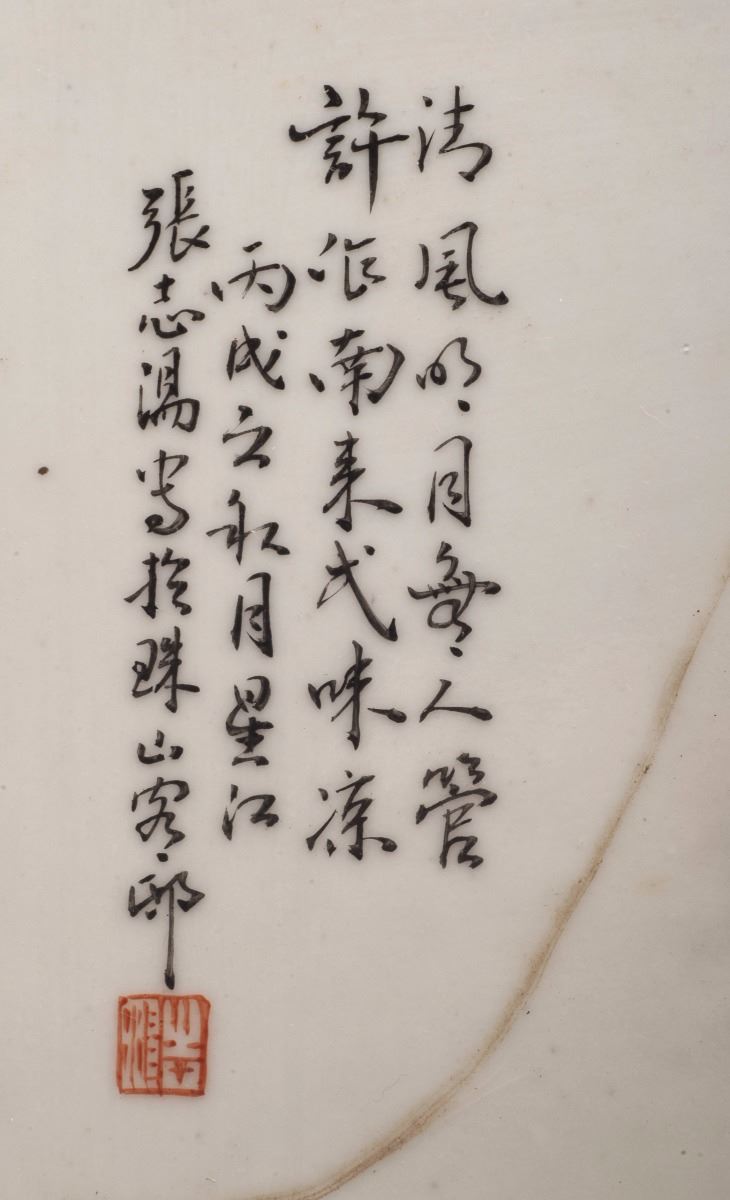 清風明月無人管
許作南来弌味凉
丙戌之秋月星江
張志湯寫於珠山客邸